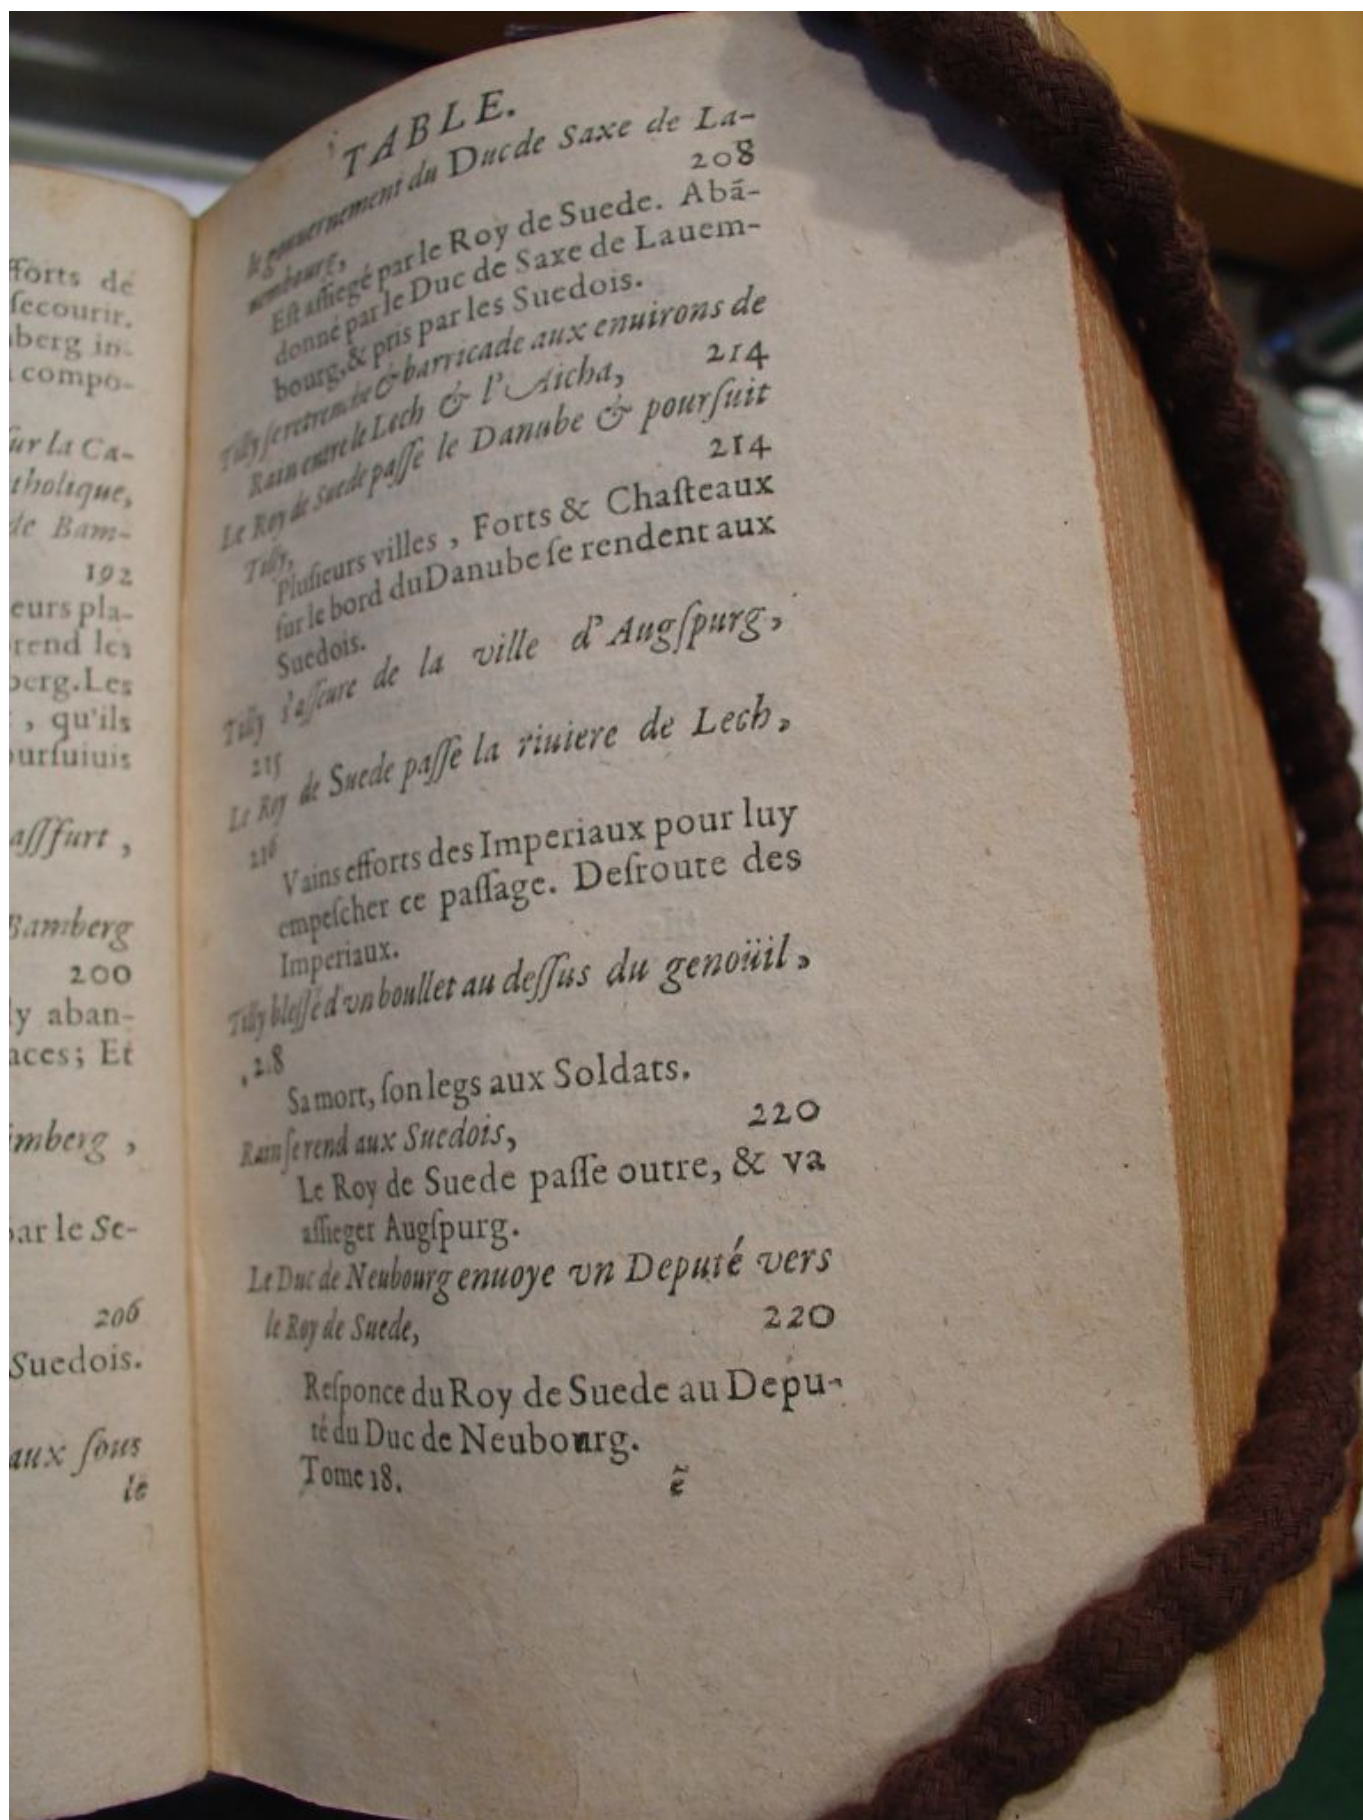 fforts de
ſecourir.
berg in-
compo-
ur la Ca-
tholique,
de Bam-
192
eurs pla-
rend les
berg. Les
, qu'ils
ourſuiuis
aſſfurt,
Bamberg
200
y aban-
aces; Et
mberg,
par le Se-
206
Suedois.
aux ſous
le
TABLE.
le gouuernement du Duc de Saxe de La-
uembourg, 208
Eſt aſſiegé par le Roy de Suede. Abã-
donné par le Duc de Saxe de Lauem-
bourg, & pris par les Suedois.
Tilly ſe retrenche & barricade aux enuirons de
Rain entre le Lech & l'Aicha, 214
Le Roy de Suede paſſe le Danube & pourſuit
Tilly, 214
Pluſieurs villes, Forts & Chaſteaux
ſur le bord du Danube ſe rendent aux
Suedois.
Tilly s'aſſeure de la ville d'Augſpurg,
215
Le Roy de Suede paſſe la riuiere de Lech,
216
Vains efforts des Imperiaux pour luy
empeſcher ce paſſage. Deſroute des
Imperiaux.
Tilly bleſſé d'vn boullet au deſſus du genoüil,
Sa mort, ſon legs aux Soldats.
Rain ſe rend aux Suedois, 220
Le Roy de Suede paſſe outre, & va
aſſieger Augſpurg.
Le Duc de Neubourg enuoye vn Deputé vers
le Roy de Suede, 220
Reſponce du Roy de Suede au Depu-
té du Duc de Neubourg.
Tome 18. ẽ